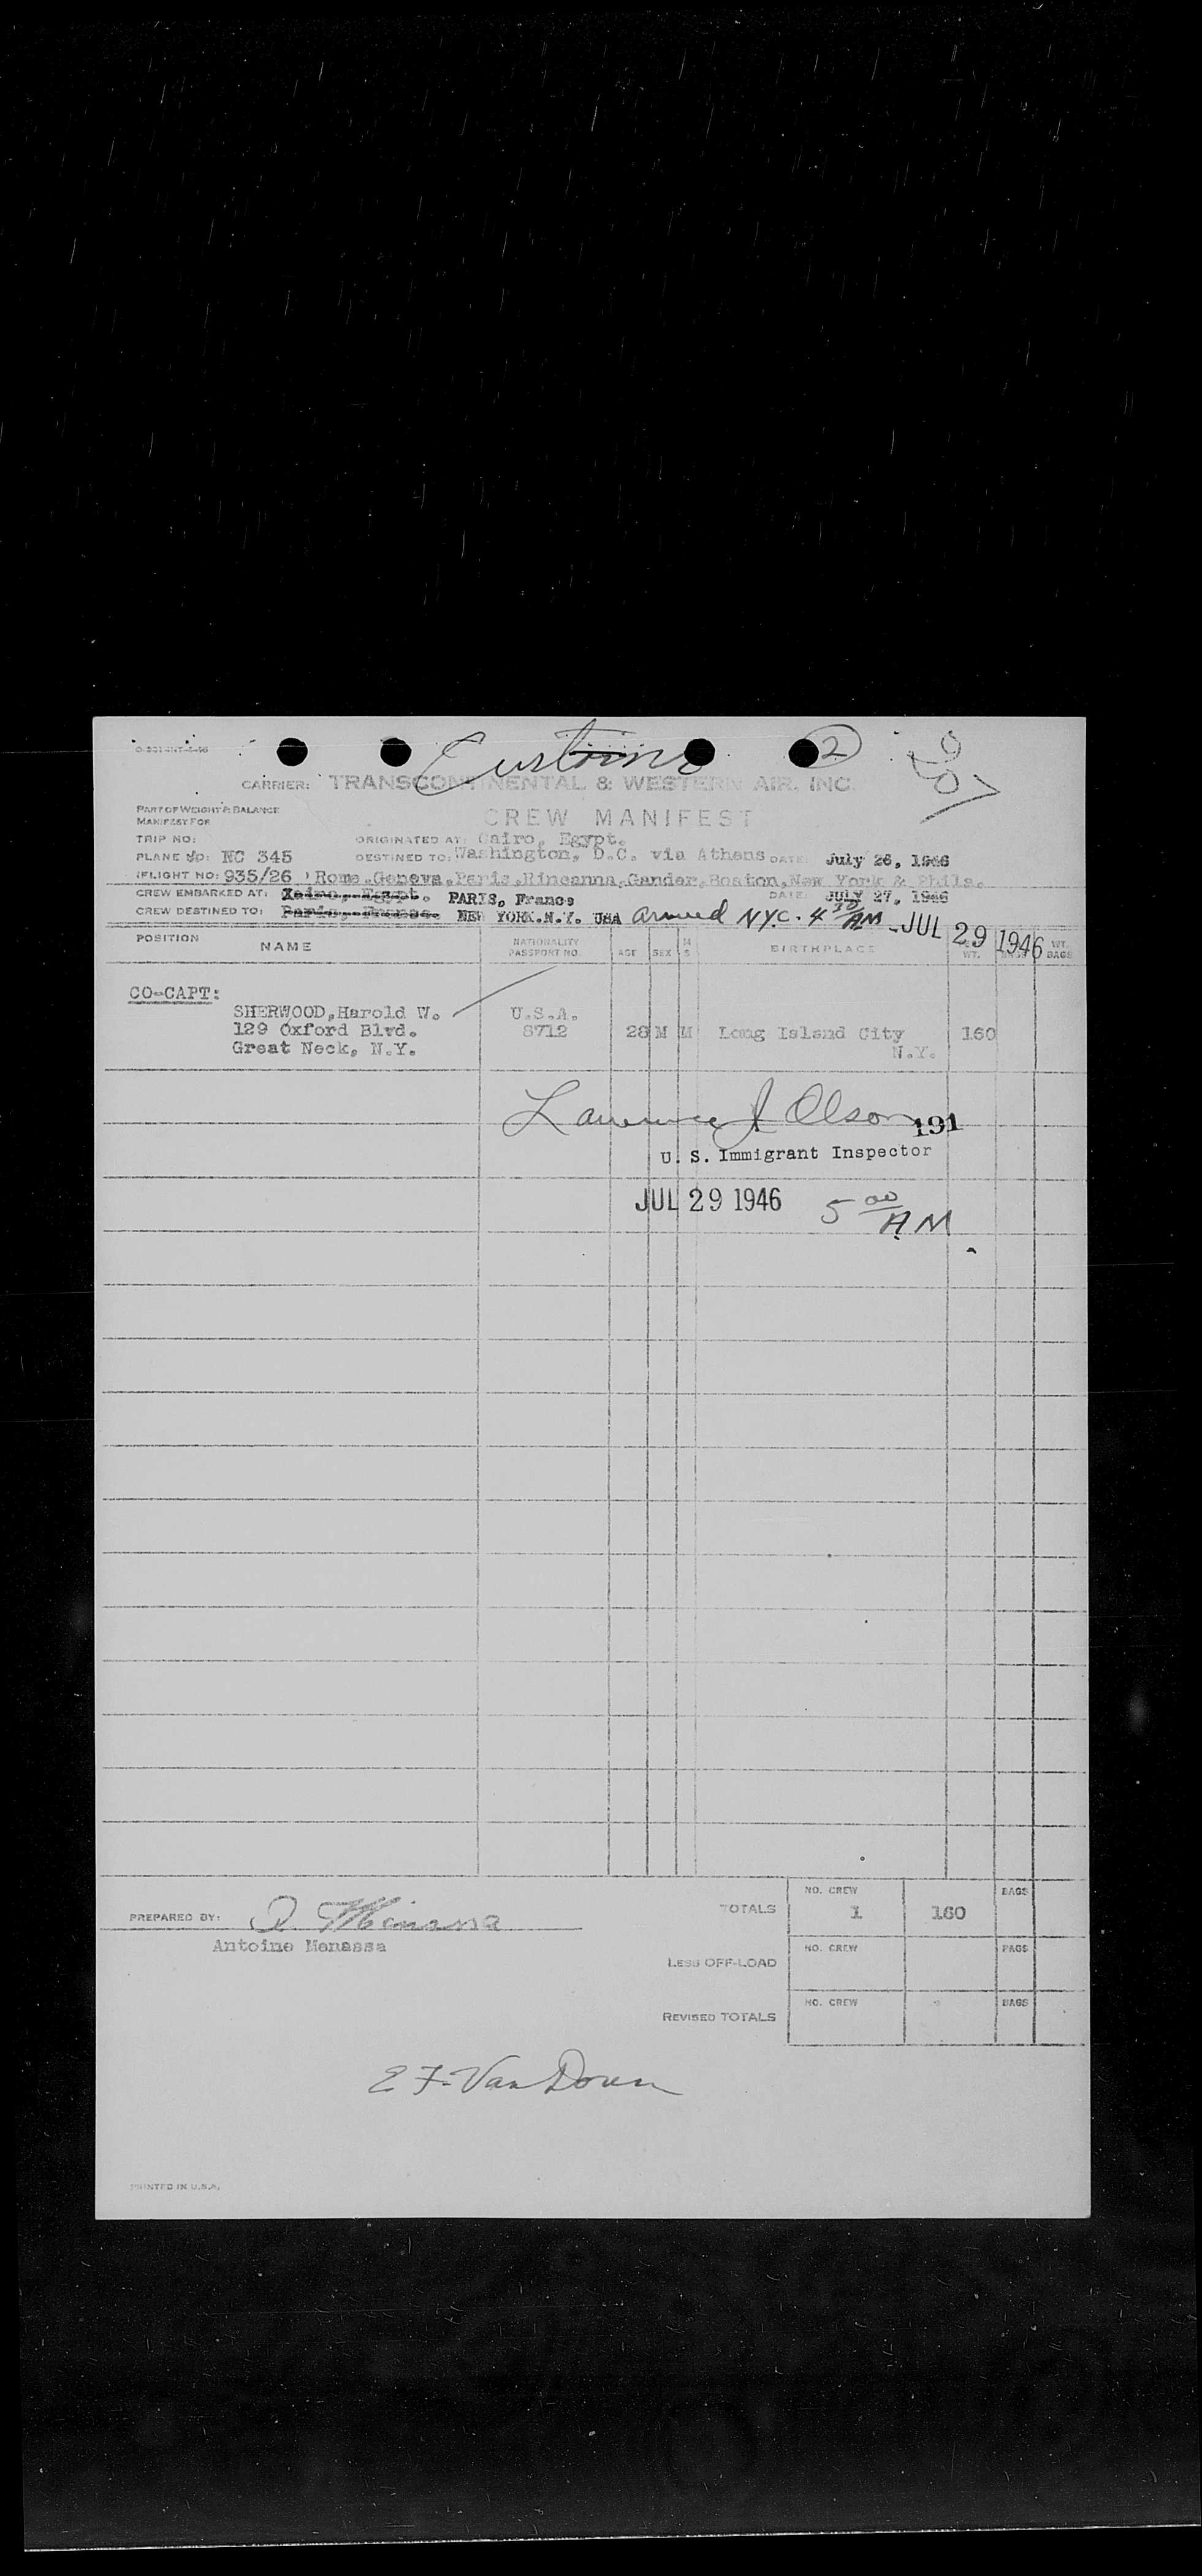 Customs 2
CARRIER: TRANSCONTINENTAL & WESTERN AIR, INC.
PART OF WEIGHT & BALANCE
MANIFEST FOR
CREW MANIFEST
TRIP NO: ORIGINATED AT: Cairo, Egypt.
PLANE NO: NC 345 DESTINED TO: Washington, D.C. via Athens DATE: July 26, 1946
FLIGHT NO: 935/26 Rome,Geneva,Paris,Rineanna,Gander,Boston,New York & Phila.
CREW EMBARKED AT: Cairo, Egypt. PARIS, France DATE: JULY 27, 1946
CREW DESTINED TO: Paris, France. NEW YORK.N.Y. USA arrived N.Y.C. 4 30 AM JUL 29 1946
POSITION NAME NATIONALITY PASSPORT NO. AGE SEX M S BIRTHPLACE WT. BAGS WT. BAGS
CO-CAPT:
SHERWOOD,Harold W. U.S.A.
129 Oxford Blvd. 8712 28 M M Long Island City 160
Great Neck, N.Y. N.Y.
Lawrence J Olson 191
U. S. Immigrant Inspector
JUL 29 1946 5 00 AM
NO. CREW BAGS
PREPARED BY: A. Menassa TOTALS 1 160
Antoine Menassa
NO. CREW BAGS
LESS OFF-LOAD
NO. CREW BAGS
REVISED TOTALS
E F. Van Doren
PRINTED IN U.S.A.